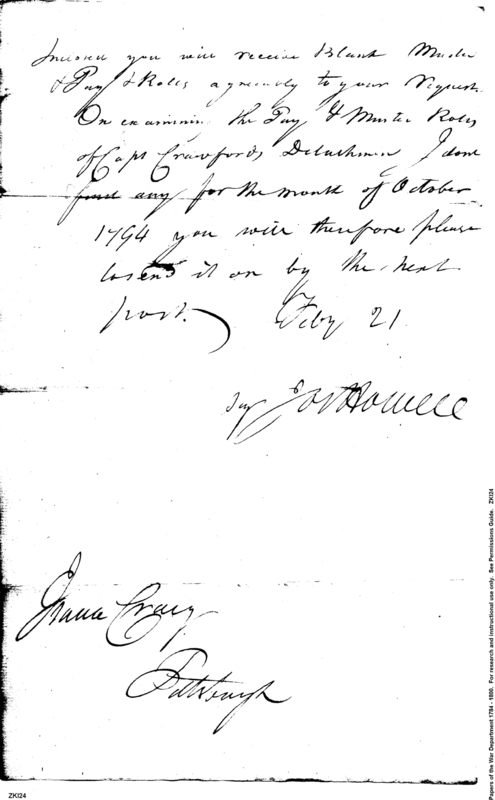 Inclosed you will receive Blank Muster
& Pay & Roles agreeably to your Request
On examining the Pay & Muster Roles
of Capt Crawfords Detachmen I dont
find any for the month of October
1794 you will therefore please
to send it on by the next
post. Feby 21
Jos Howell
Isaac Craig
Pittsburgh
Papers of the War Department 1784 - 1800. For research and instructional use only. See Permissions Guide. ZKI24
ZKI24